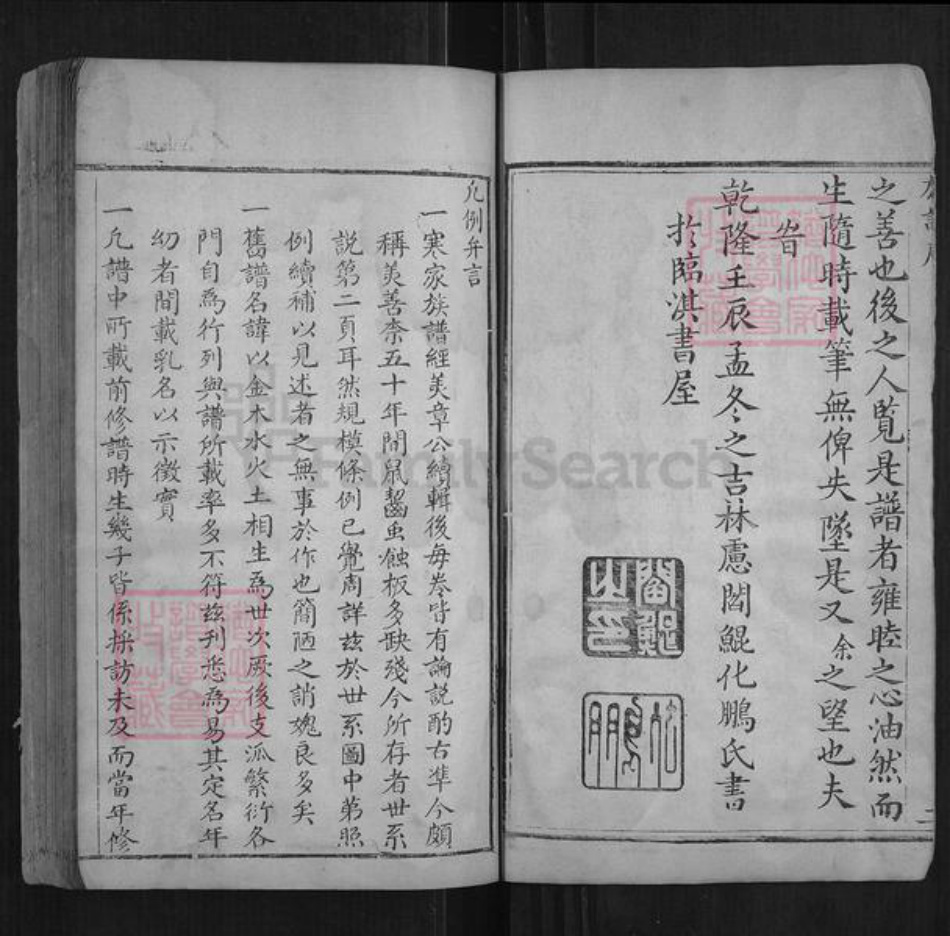 之善也後之人覧是譜者雍睦之心油然而
生隨時載筆無俾失墜是又余之望也夫
旹
乾隆壬辰孟冬之吉林慮閻鯤化鵬氏書
於臨淇書屋
凡例弁言
一寒家族譜經美章公續輯後每卷皆有論説酌古準今頗
稱美善柰五十年間鼠齧虫蝕板多缺殘今所存者世系
説第二頁耳然規模條例已覺周詳兹於世系圖中第照
例續補以見述者之無事於作也簡陋之誚媿良多矣
一舊譜名諱以金木水火土相生為世次厥後支派繁衍各
門自為行列與譜所載率多不符兹刋悉為易其定名年
幼者間載乳名以示徵實
一凡譜中所載前修譜時生幾子皆係採訪未及而當年修
FamilySearch